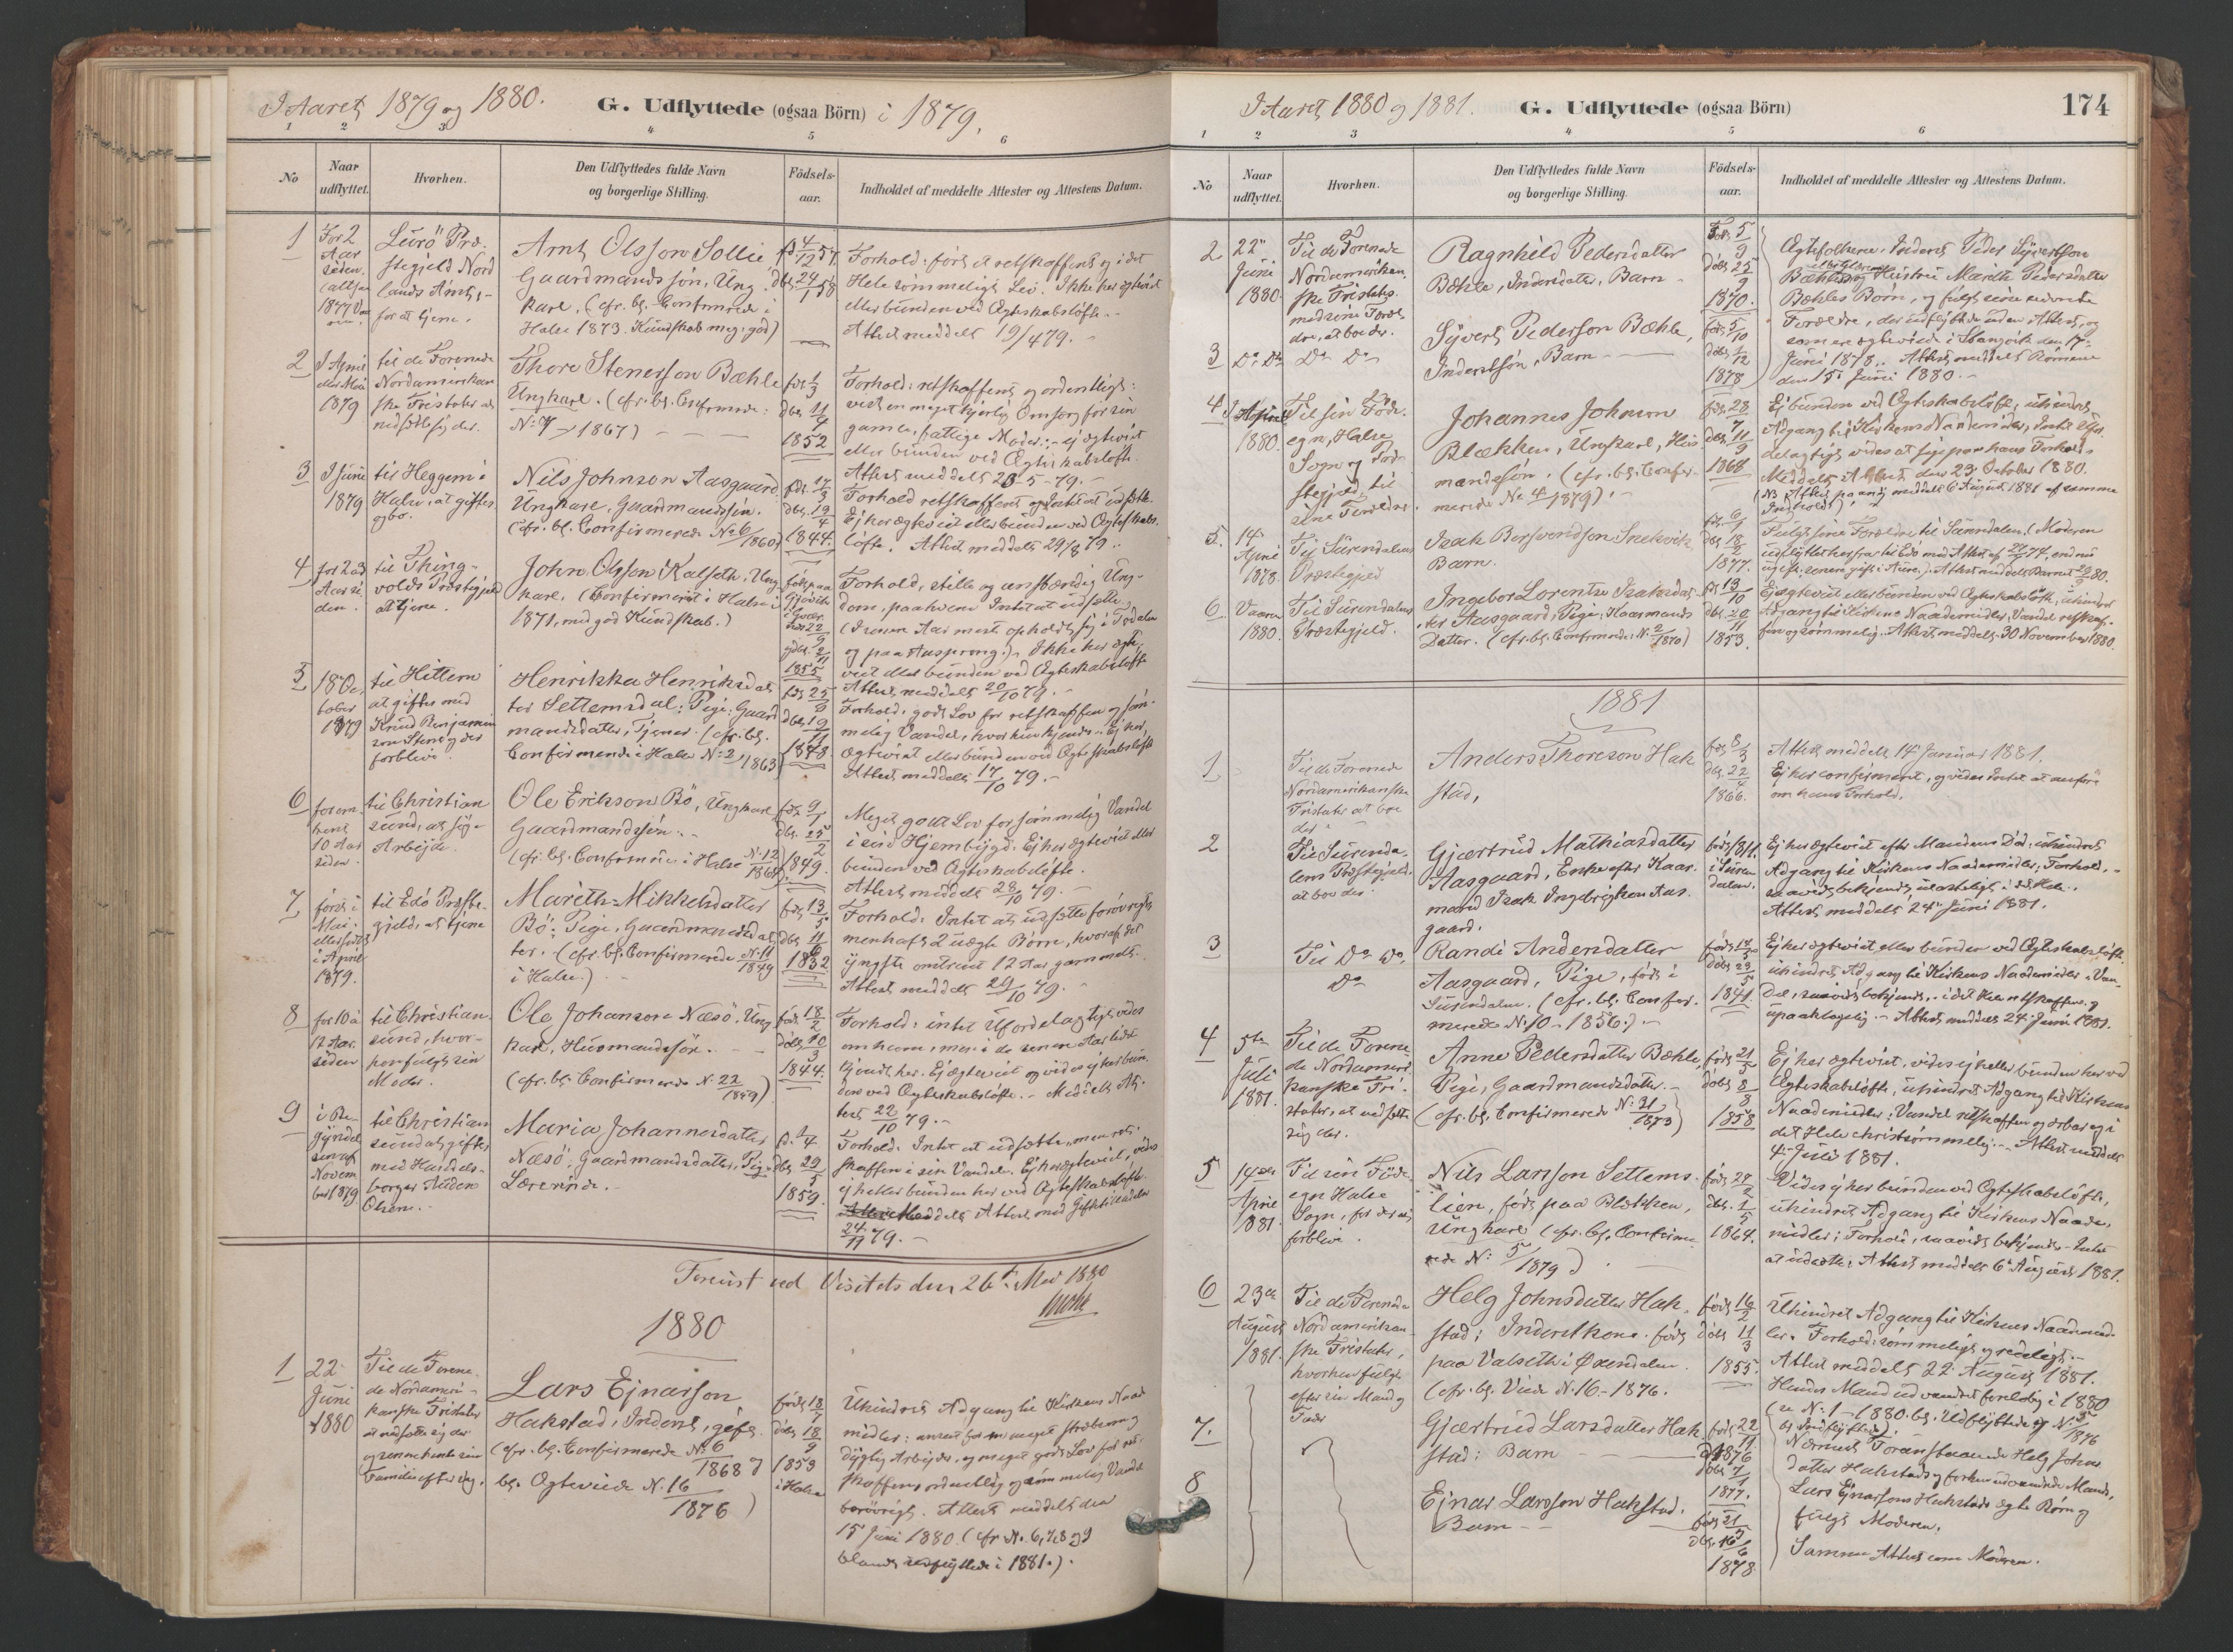 I Aaret 1879 og 1880.
G. Udflyttede (ogsaa Börn) i 1879.
1 2 3 4 5 6
No
Naar udflyttet.
Hvorhen.
Den Udflyttedes fulde Navn og borgerlige Stilling.
Födsels-aar.
Indholdet af meddelte Attester og Attestens Datum.
1
For 2
Aar
siden
1877
Lurö Præ-
stegjeld Nord
lands Amt,
for at tjene.
Arnt Olsson Sollie
Gaardmandssön, Ung-
karl. (cfr. bl. Confirmerede i
Halse 1873. Kundskab meg. god)
fd 4/12 57
dbt 24/1 58
Forhold: fört et retskaffent og i det
Hele sömmeligt Lev. Ikke her ægteviet
eller bunden ved Ægteskabslöfte.
Attest meddelt 19/4 79.
2
I April
eller Mai
1879
til de Forenede
Nordamerikan
ske Fristater at
nedsætte sig der.
Thore Stenerson Bæhle
Ungkarl. (cfr. bl. Confirmerede:
N: 7 1867)
föd 1/3
dbt 11/4
1852
Forhold: retskaffent og ordentligt:
vist en meget kjærlig Omsorg for sin
gamle, fattige Moder; ej ægteviet
eller bunden ved Ægteskabslöfte.
Attest meddelt 28-5-79.
3
I Juni
1879
til Heggem i
Halse, at giftes
og bo.
Nils Johnson Aasgaard
Ungkarl, Gaardmandssön.
(cfr. bl. Confirmerede No 6/1860)
föd. 17/3
dbt. 19/4
1844.
Forhold retskaffent og Intet at udsætte.
Ej her ægteviet eller bunden ved Ægteskabs-
löfte. Attest meddelt 29/8 79.
4
for 2 a 3
Aar si
den.
til Thing-
volds Præstegjeld
at tjene.
John Olsson Kalseth, Ung
karl. (Confirmeret i Halse
1871, med god Kundskab.)
föd paa
Gjövik
22/9
2/11
1855
Forhold, stille og anstændig Ung-
dom, paa hvem Intet at udsætte
(I senere Aar mest opholdt sig i Todalen
og paa Ausprong.) Ikke her ægte-
viet eller bunden ved Ægteskabslöfte
Attest meddelt 20/10 79.
5
18 Oc
tober
1879
til Hittern
at giftes med
Knud Benjamin
son Stene og der
forblive.
Henrikka Henriksdat
ter Settemsdal: Pige: Gaard
mandsdatter, Tjener. (cfr. bl.
Confirmerede i Halse N: 2/1863)
föd 25/9
dbt. 19/11
1848.
Forhold: godt Lov for retskaffen og söm-
melig Vandel, hvor hun kjendes. Ej her
ægteviet eller bunden ved Ægteskabslöfte
Attest meddelt 17/10 79.
6
for om-
trent
10 Aar
siden
til Christian
sund, at söge
Arbejde.
Ole Erikson Bö, Ungkarl
Gaardmandssön.
(cfr. bl. Confirmerede i Halse N: 12/1864)
föd 9/1
dbt. 25/2
1849.
Meget godt Lov for sömmelig Vandel
i sin Hjembygd. Ej her ægteviet eller
bunden ved Ægteskabslöfte.
Attest meddelt 28/10 79.
7
först i
Mai
eller sidst
i April
1879.
til Edö Præste-
gjeld, at tjene
Mareth Mikkelsdatter
Bö: Pige, Gaardmandsdat
ter. (cfr. bl. Confirmerede N: 11/1849
i Halse.)
föd 13/5
dbt 11/6
1832
Forhold: Intet at udsætte forövrigt,
men haft 2 uægte Börn, hvoraf det
yngste omtrent 12 Aar gammelt.
Attest meddelt 29/10 79.
8
for 10 à
12 Aar
siden
til Christian
sund, hvor-
hen fulgt sin
Moder.
Ole Johanson Næsö. Ung
karl, Husmandssön.
(cfr. bl. Confirmerede N. 22/1859)
föd. 18/2
döbt 10/3
1844.
Forhold: intet Ufordelagtigt vides
om ham, men i de senere Aar lidet
kjendt her. Ej ægteviet og vides ej her bun-
den ved Ægteskabslöfte. Meddelt At-
test 22/10 79.
9
i Be-
gyndel
sen af
Novem
ber 1879
til Christian
sund at giftes
med Handels-
borger Auden
Olsen.
Maria Johannesdatter
Næsö: Gaardmandsdatter. Pige
Lærerinde.
fd. 1/4
dbt 29/5
1859.
Forhold: Intet at udsætte, men ret-
skaffen i sin Vandel. Ej her ægteviet, vides
ej heller bunden her ved Ægteskabslöfte.
Meddelt Attest med Gifteti
24/11 79.
Forevist ved Visitats den 26de Mai 1880
1880
1
22
Juni
1880
Til de Forene-
de Nordameri-
kanske Fristater
at nedsætte sig der
og senere hente sin
Familie efter sig.
Lars Ejnarson
Hakstad, Inderst, gift.
(cfr. bl. Confirmerede No 6/1868 og
bl. Ægteviede N. 16/1876)
föd 18/7
döbt 18/9
1853
i Halse
Uhindret Adgang til Kirkens Naad
midler: anseet for en meget stræbsom og
dygtig Arbejder, og meget godt Lov for ret-
skaffen ordentlig og sömmelig Vandel
forövrigt. Attest meddelt den
15 Juni 1880 (cfr N. 6, 7, 8 og 9
blandt udflyttede i 1881.).
I Aaret 1880 og 1881.
G. Udflyttede (ogsaa Börn)
174
1 2 3 4 5 6
No
Naar udflyttet.
Hvorhen.
Den Udflyttedes fulde Navn og borgerlige Stilling.
Födsels-aar.
Indholdet af meddelte Attester og Attestens Datum.
2
22
Juni
1880.
Til de Forenede
Nordamerikan
ske Fristater
med sine Foræl
dre, at bo der.
Ragnhild Pedersdatter
Bæhle, Inderstdatter, Barn
Föd 5/9
döbt 25/9
1870.
Ægtefolkene: Inderst Peder Sivertson
Bæhles og Hustru Mareth Pedersdatter
Bæhles Börn, og fulgt sine nævnte
Forældre, der udflyttede uden Attest, og
som ere ægteviede i Stangvik den 17
Juni 1878. Attest meddelt Börnene
den 15 Juni 1880.
3
Do Do
Do Do
Syvert Pederson Bæhle,
Inderstsön, Barn
föd 5/10
döbt 1/12
1878
4
I April
1880.
Til sin Föde-
egn, Halse
Sogn og Præ-
stegjeld, til
sine Forældre.
Johannes Johnson
Blækken, Ungkarl, Hus
mandssön. (cfr. bl. Confir-
merede No 4/1879).
föd. 28/7
döbt 11/9
1868
Ej bunden ved Ægteskabslöfte, uhindret
Adgang til Kirkens Naademidler, Intet Ufor-
delagtigt vides at sige om hans Forhold.
Meddelt Attest den 23 October 1880.
(NB Attest paa ny meddelt 6 August 1881 af samme
Indhold)
5.
14
April
1878.
Til Surendalens
Præstegjeld
Isak Bersvendson Snekvik
Barn.
fd. 6/1
döbt 18/2
1877.
Fulgt sine Forældre til Surendalen. (Moderen
udflyttet herfra til Edö med Attest af 27/74, end nu
ugift: senere gift i Aure.). Attest meddelt Barnet 80.
6
Vaaren
1880.
Til Surendalens
Præstegjeld.
Ingebor Lorentze Isaksdat-
ter Aasgaard, Pige, Kaarmands
Datter. (cfr. bl. Confirmerede: N. 2/1870)
fd 13/10
döbt. 20/11
1853.
Ej ægteviet eller bunden ved Ægteskabslöfte, uhindret
Adgang til Kirkens Naademidler, Vandel retskaf-
fen og sömmelig. Attest meddelt 30 November 1880.
1881
1
Til de Forenede
Nordamerikanske
Fristater at bo
der.
Anders Thoreson Hak
stad,
föd. 8/3
dbt. 22/4
1866.
Attest meddelt 14 Januar 1881.
Ej her confirmeret, og vides Intet at anföre
om hans Forhold.
2
Til Surenda-
lens Præstegjeld
at bo der.
Gjærtrud Mathiasdatter
Aasgaard, Enke efter Kaar
mand Isak Ingebrigtson Aas-
gaard.
föd 1811
i Suren
dalen.
Ej her ægteviet efter Mandens Död, uhindret
Adgang til Kirkens Naademidler, Forhold,
saavidt bekjendt, ulasteligt i det Hele.
Attest meddelt 24 Juni 1881.
3
Til Do Do
Do
Randi Andersdatter
Aasgaard, Pige, föd i
Surendalen. (cfr. bl. Confir-
merede N: 10 - 1856.)
döbt 29/5
1841.
Ej her ægteviet eller bunden ved Ægteskabslöfte.
uhindret Adgang til Kirkens Naademidler. Van-
del, saavidt bekjendt, i det Hele retskaffen og
upaaklagelig. Attest meddelt 24 Juni 1881.
4
5te
Juli
1881.
Til de Forene-
de Nordameri
kanske Fri-
stater, at nedsætte
sig der.
Anne Pedersdatter Bæhle,
Pige, Gaardmandsdatter.
(cfr. bl. Confirmerede N: 31/1873)
föd 21/5
döbt 8/8
1858
Ej her ægteviet, vides ej heller bunden her ved
Ægteskabslöfte, uhindret Adgang til Kirkens
Naademidler; Vandel retskaffen og ærbar og i
det Hele christsömmelig. Attest meddelt
4 Juli 1881.
5
14de
April
1881.
Til sin Föde
egn Halse
Sogn, for der at
forblive.
Nils Larsson Settems-
lien, föd paa Blækken,
Ungkarl (cfr. bl. Confirme-
rede N: 5/1879)
föd 29/2
dbt. 1/5
1864.
Vides ej her bunden ved Ægteskabslöfte,
uhindret Adgang til Kirkens Naade-
midler; Forhold, saavidt bekjendt, Intet
at udsætte. Attest meddelt 6 August 1881.
6
23de
August
1881.
Til de Forenede
Nordamerikan
ske Fristater,
hvorhen fulgt
efter sin Mand og
Fader
Helg Johnsdatter Hak-
stad; Inderstkone. föd
paa Valseth i Øxendalen.
(cfr. bl. Viede N. 16 - 1876.
föd 16/2
döbt 11/3
1855.
Uhindret Adgang til Kirkens Naademid-
ler. Forhold: sömmeligt og redeligt.
Attest meddelt 22 August 1881.
Hendes Mand udvandret foreløbig i 1880
(se N: 1 - 1880. bl. Udflyttede og N: 5/1876
bl Indflyttede).
7.
Gjærtrud Larsdatter Hak
stad: Barn
föd 22/11
1876
döbt 7/1
1877.
Nærmest Foranstaaende Helg Johns
datter Hakstads og forhen udvandrede Mands,
Lars Ejnarsons Hakstads ægte Börn og
fulgt Moderen.
Samme Attest som Moderen.
8
Ejnar Larsson Hakstad.
Barn
föd 21/5
dbt. 16/6
1878